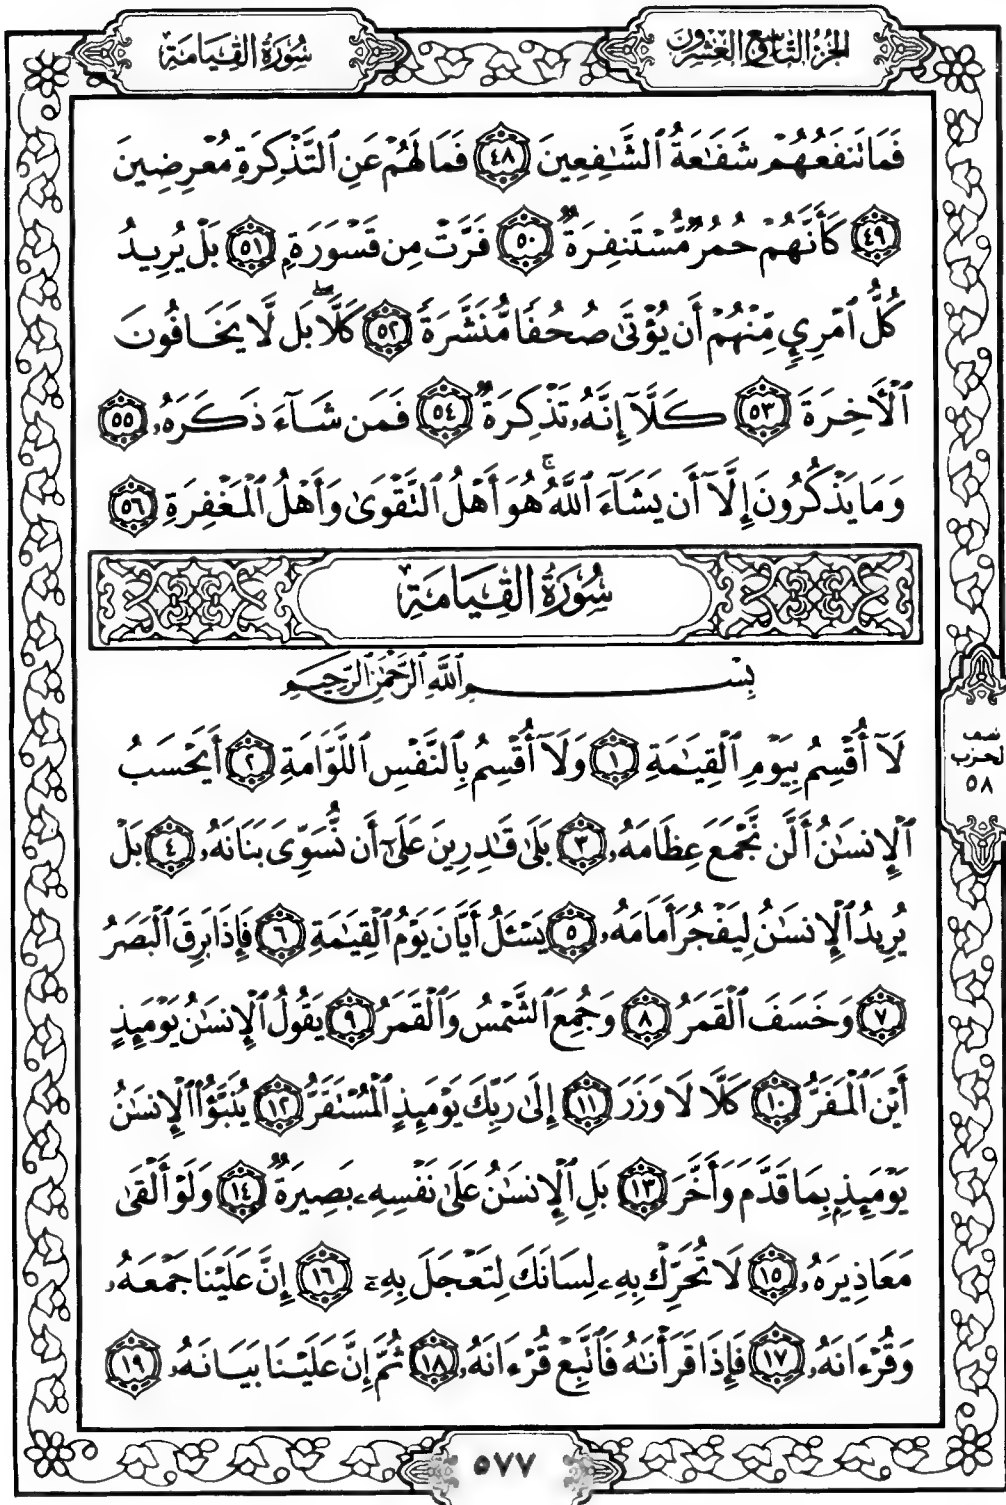 الجزء التاسع والعشرون
سورة القيامة
فَمَا تَنفَعُهُمْ شَفَٰعَةُ ٱلشَّٰفِعِينَ ٤٨ فَمَا لَهُمْ عَنِ ٱلتَّذْكِرَةِ مُعْرِضِينَ
٤٩ كَأَنَّهُمْ حُمُرٌ مُّسْتَنفِرَةٌ ٥٠ فَرَّتْ مِن قَسْوَرَةٍ ٥١ بَلْ يُرِيدُ
كُلُّ ٱمْرِئٍ مِّنْهُمْ أَن يُؤْتَىٰ صُحُفًا مُّنَشَّرَةً ٥٢ كَلَّا ۖ بَل لَّا يَخَافُونَ
ٱلْأَخِرَةَ ٥٣ كَلَّآ إِنَّهُۥ تَذْكِرَةٌ ٥٤ فَمَن شَآءَ ذَكَرَهُۥ ٥٥
وَمَا يَذْكُرُونَ إِلَّآ أَن يَشَآءَ ٱللَّهُ ۚ هُوَ أَهْلُ ٱلتَّقْوَىٰ وَأَهْلُ ٱلْمَغْفِرَةِ ٥٦
سُورَةُ القِيَامَةِ
بِسْمِ ٱللَّهِ ٱلرَّحْمَٰنِ ٱلرَّحِيمِ
لَآ أُقْسِمُ بِيَوْمِ ٱلْقِيَٰمَةِ ١ وَلَآ أُقْسِمُ بِٱلنَّفْسِ ٱللَّوَّامَةِ ٢ أَيَحْسَبُ
ٱلْإِنسَٰنُ أَلَّن نَّجْمَعَ عِظَامَهُۥ ٣ بَلَىٰ قَٰدِرِينَ عَلَىٰٓ أَن نُّسَوِّىَ بَنَانَهُۥ ٤ بَلْ
يُرِيدُ ٱلْإِنسَٰنُ لِيَفْجُرَ أَمَامَهُۥ ٥ يَسْـَٔلُ أَيَّانَ يَوْمُ ٱلْقِيَٰمَةِ ٦ فَإِذَا بَرِقَ ٱلْبَصَرُ
٧ وَخَسَفَ ٱلْقَمَرُ ٨ وَجُمِعَ ٱلشَّمْسُ وَٱلْقَمَرُ ٩ يَقُولُ ٱلْإِنسَٰنُ يَوْمَئِذٍ
أَيْنَ ٱلْمَفَرُّ ١٠ كَلَّا لَا وَزَرَ ١١ إِلَىٰ رَبِّكَ يَوْمَئِذٍ ٱلْمُسْتَقَرُّ ١٢ يُنَبَّؤُا۟ ٱلْإِنسَٰنُ
يَوْمَئِذٍۭ بِمَا قَدَّمَ وَأَخَّرَ ١٣ بَلِ ٱلْإِنسَٰنُ عَلَىٰ نَفْسِهِۦ بَصِيرَةٌ ١٤ وَلَوْ أَلْقَىٰ
مَعَاذِيرَهُۥ ١٥ لَا تُحَرِّكْ بِهِۦ لِسَانَكَ لِتَعْجَلَ بِهِۦٓ ١٦ إِنَّ عَلَيْنَا جَمْعَهُۥ
وَقُرْءَانَهُۥ ١٧ فَإِذَا قَرَأْنَٰهُ فَٱتَّبِعْ قُرْءَانَهُۥ ١٨ ثُمَّ إِنَّ عَلَيْنَا بَيَانَهُۥ ١٩
نصف
الحزب
٥٨
٥٧٧